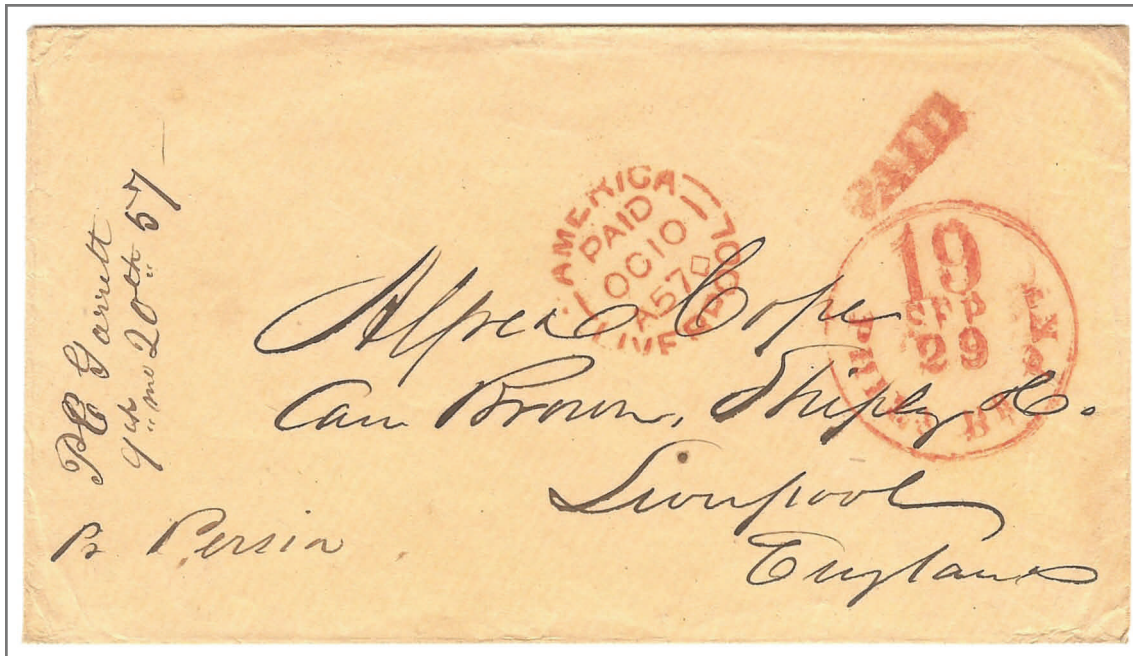 P C Garrett
9th mo 20th 57
PAID
AMERICA
PAID
OC 10
A57
LIVERPOOL
19
SEP
29
PHILADELPHIA PKT
Alfred Cope
Care Brown, Shipley & Co.
Liverpool
England
Pr Persia